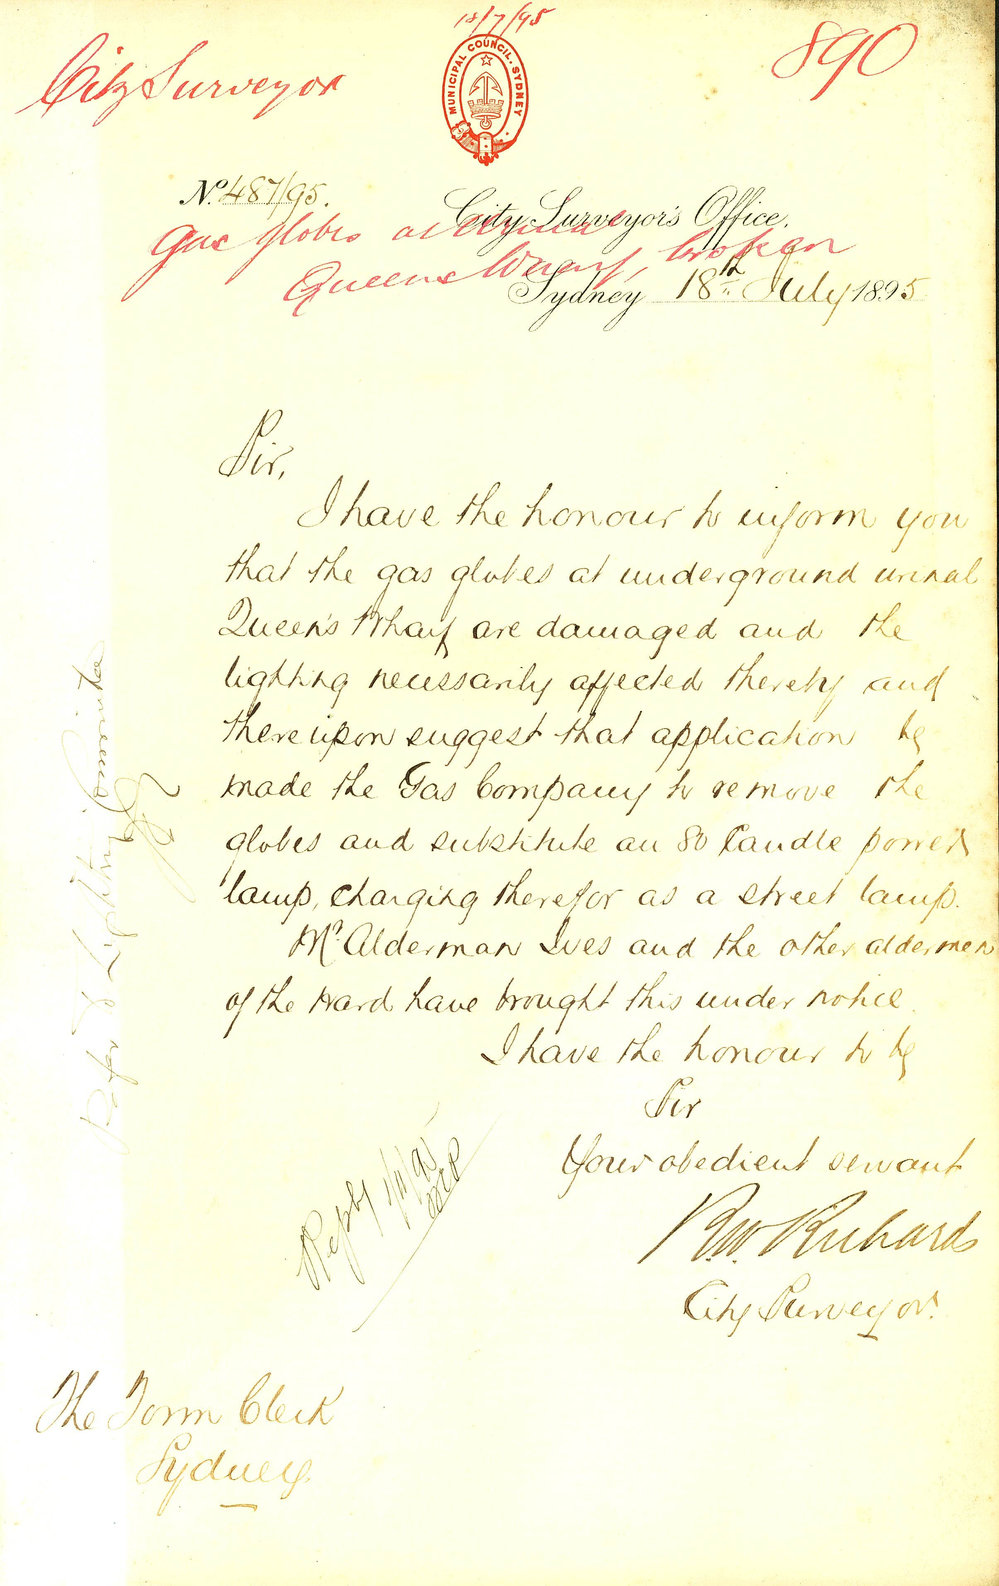 18/7/95
City Surveyor
890
MUNICIPAL COUNCIL. SYDNEY
No. 487/95.
City Surveyor's Office,
Gas globes at urinal
Queens Wharf, broken
Sydney 18th July 1895
Sir,
I have the honour to inform you
that the gas globes at underground urinal
Queen's Wharf are damaged and the
lighting necessarily affected thereby and
thereupon suggest that application be
made the Gas Company to remove the
globes and substitute an 80 Candle power
lamp, charging therefor as a street lamp.
Mr. Alderman Ives and the other aldermen
of the Ward have brought this under notice.
I have the honour to be
Sir
Your obedient servant
R.W. Richards
City Surveyor.
Refer to Lighting Committee
Reply 1/11/95
The Town Clerk
Sydney